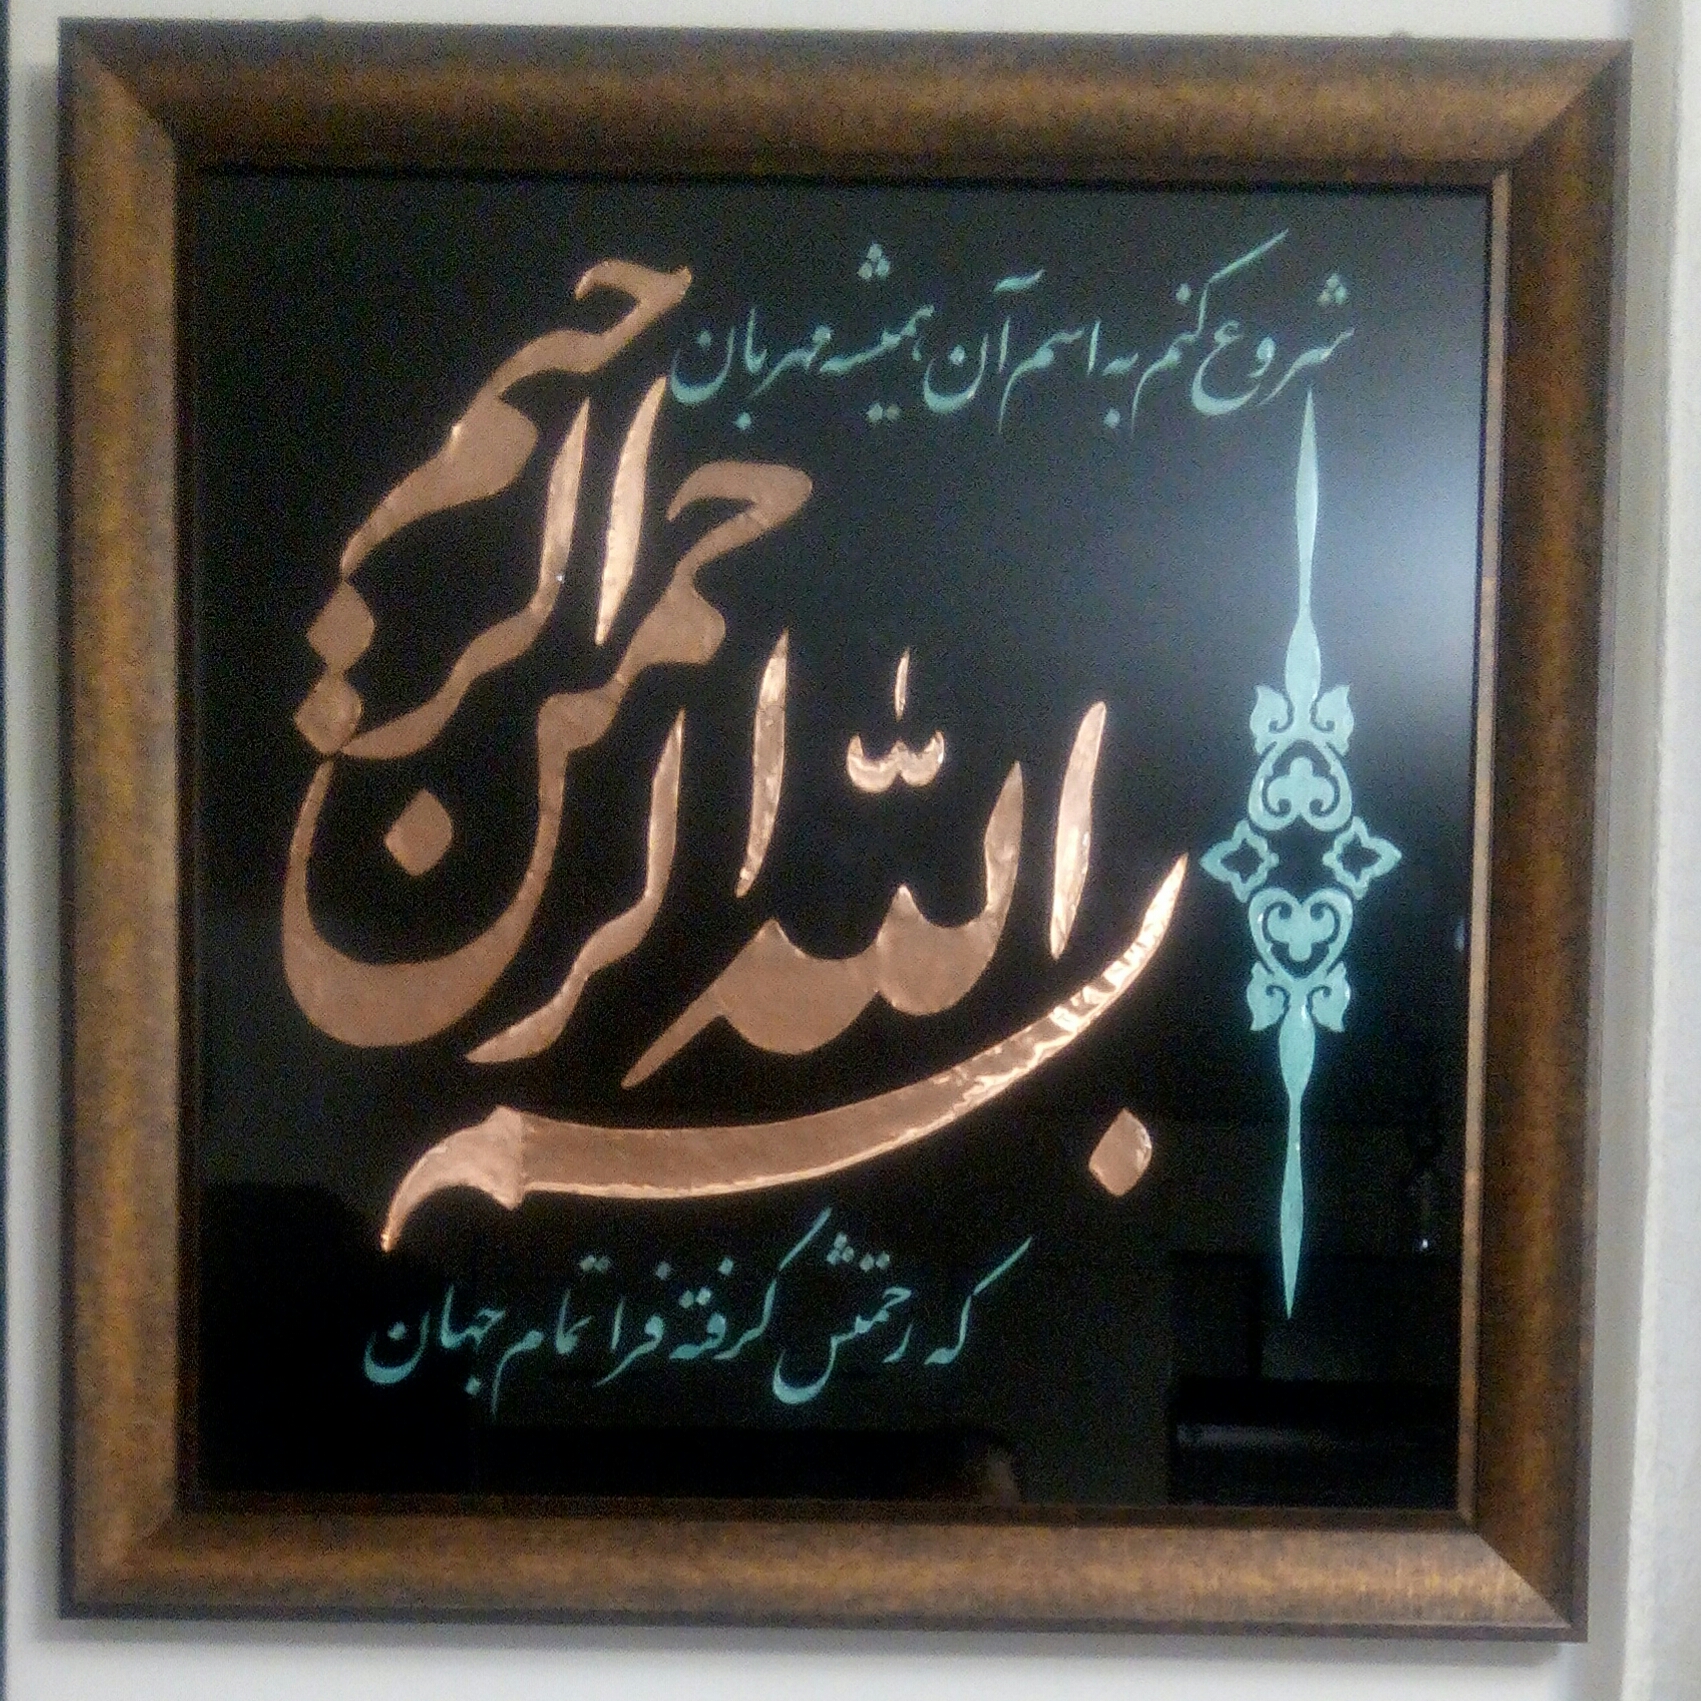 شروع کنم به اسم آن همیشه مهربان
بسم الله الرحمن الرحیم
که رحمتش گرفته فرا تمام جهان